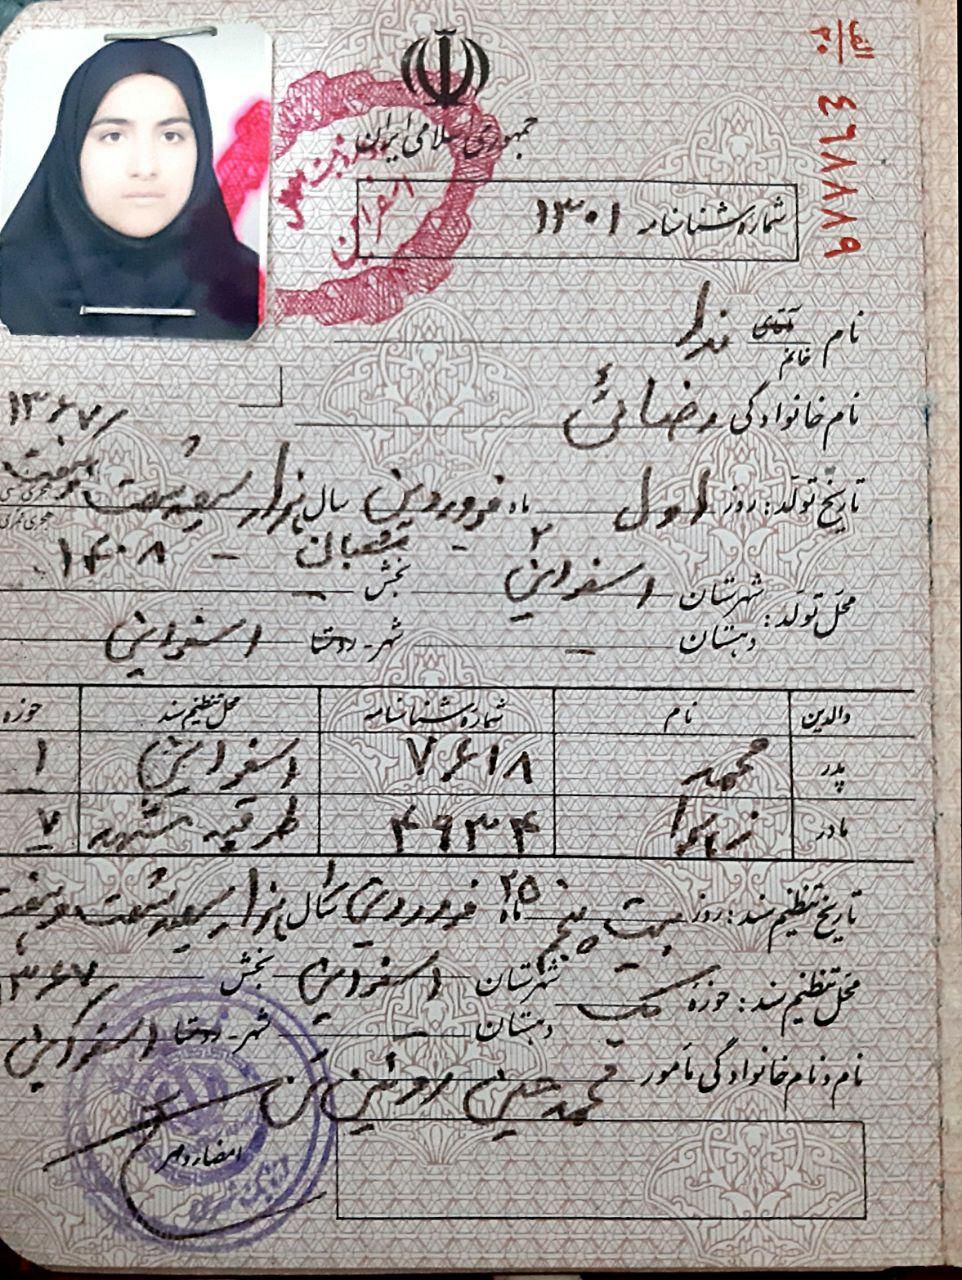 الف
۳۰
٤٦٨٨٨٩
جمهوری اسلامی ایران
شماره شناسنامه ۱۳۰۱
نام آقای خانم ندا
نام خانوادگی رضائی
۱۳۶۷
تاریخ تولد: روز اول ماه فروردین سال هزار سیصد شصت هفت
هجری قمری ۲ - شعبان - ۱۴۰۸
محل تولد: شهرستان اسفراین بخش -
دهستان - شهر - روستا اسفراین
والدین نام شماره شناسنامه محل تنظیم سند حوزه
پدر محمد ۷۶۱۸ اسفراین ۱
مادر زهرا ۴۹۳۴ طرقبه مشهد ۷
تاریخ تنظیم سند: روز بیست پنج ۲۵ ماه فروردین سال هزار سیصد شصت و هفت
۱۳۶۷
محل تنظیم سند: حوزه یک شهرستان اسفراین بخش
دهستان - شهر - روستا اسفراین
نام و نام خانوادگی مامور محمد حسین
امضاء و مهر